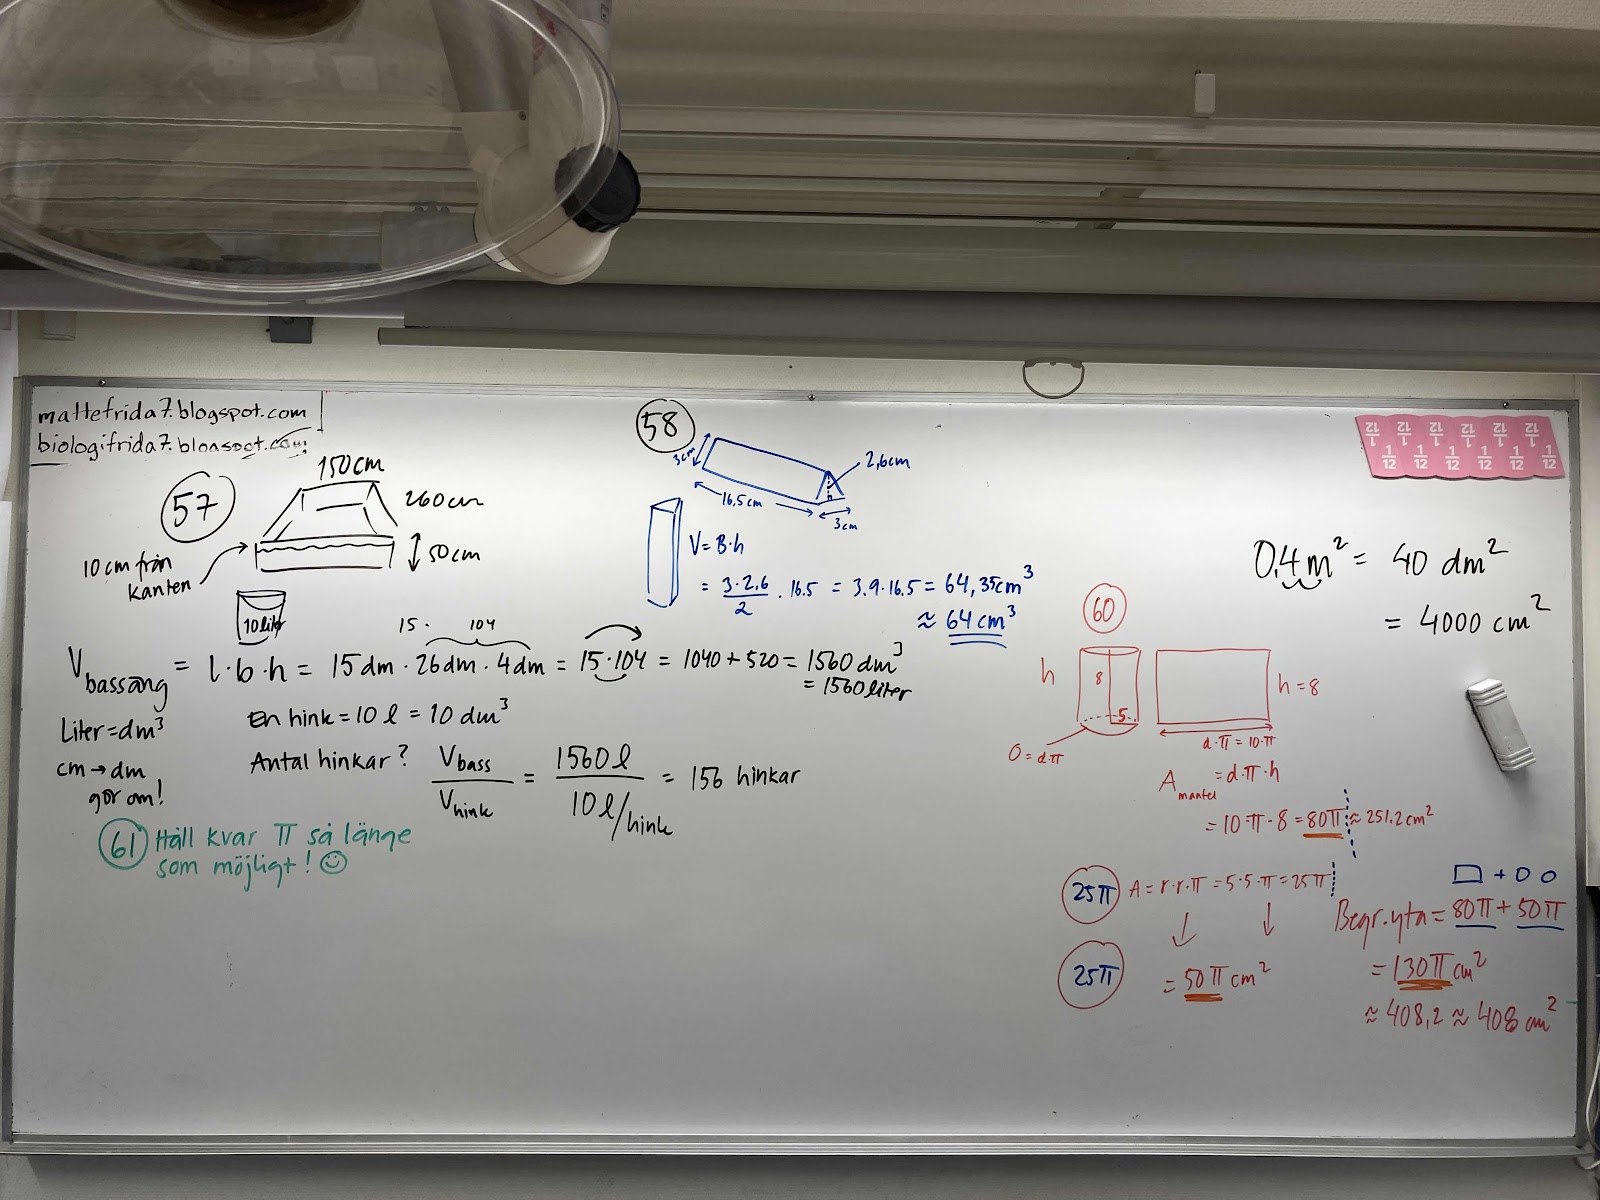 mattefrida7.blogspot.com
biologifrida7.blogspot.com
57
150cm
260cm
50cm
10 cm från
kanten
10 liter
15 · 104
V bassäng = l·b·h = 15 dm · 26dm · 4dm = 15·104 = 1040 + 520 = 1560 dm³
= 1560 liter
Liter = dm³
cm → dm
gör om!
En hink = 10 l = 10 dm³
Antal hinkar? V bass / V hink = 1560 l / 10 l/hink = 156 hinkar
61 Håll kvar π så länge
som möjligt! ☺
58
3cm
16,5cm
2,6cm
3cm
V = B·h
= 3·2.6 / 2 · 16.5 = 3.9·16.5 = 64,35cm³
≈ 64 cm³
1/12 1/12 1/12 1/12 1/12 1/12
1/12 1/12 1/12 1/12 1/12 1/12
0,4 m² = 40 dm²
= 4000 cm²
60
h
8
5
h = 8
O = d·π
d·π = 10·π
A mantel = d·π·h
= 10·π·8 = 80π ≈ 251,2 cm²
25π A = r·r·π = 5·5·π = 25π
25π = 50π cm²
Begr.yta = 80π + 50π
= 130π cm²
≈ 408,2 ≈ 408 cm²